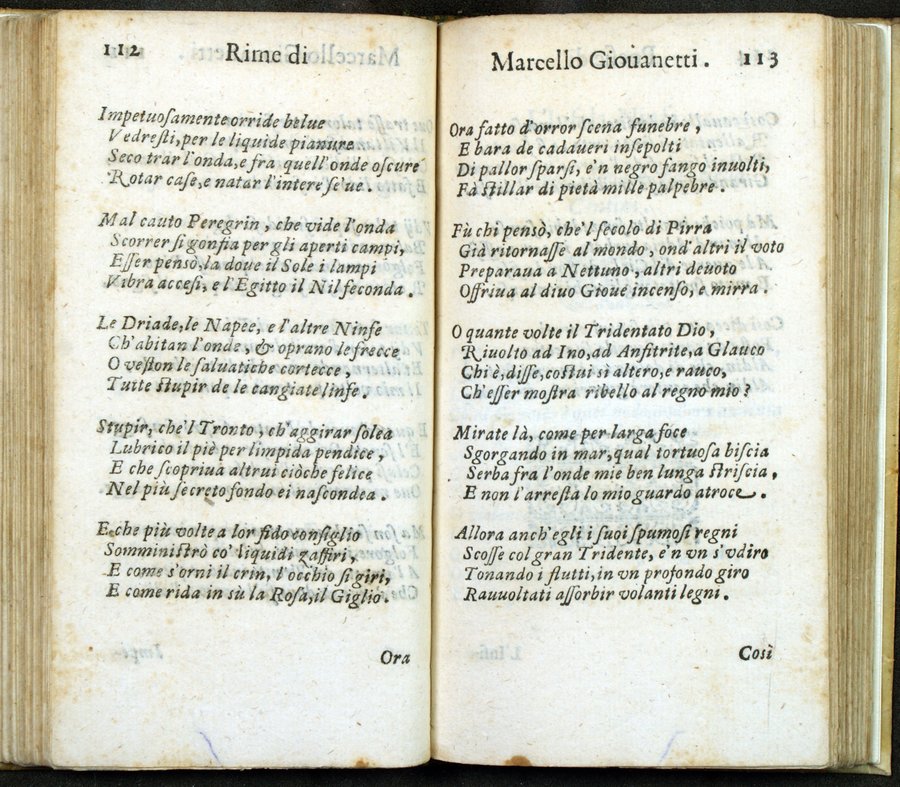 112 Rime di
Impetuosamente orride belue
Vedresti, per le liquide pianure
Seco trar l'onda, e fra quell'onde oscure
Rotar case, e natar l'intere selue.
Mal cauto Peregrin, che vide l'onda
Scorrer sì gonfia per gli aperti campi,
Esser pensò, la doue il Sole i lampi
Vibra accesi, e l'Egitto il Nil feconda.
Le Driade, le Napee, e l'altre Ninfe
Ch'abitan l'onde, & oprano le frecce
O veston le saluatiche cortecce,
Tutte stupir de le cangiate linfe.
Stupir, che'l Tronto, ch'aggirar solea
Lubrico il piè per limpida pendice,
E che scopriua altrui ciòche felice
Nel più secreto fondo ei nascondea.
E che più volte a lor fido consiglio
Somministrò co' liquidi zaffiri,
E come s'orni il crin, l'occhio si giri,
E come rida in sù la Rosa, il Giglio.
Ora
Marcello Giouanetti. 113
Ora fatto d'orror scena funebre,
E bara de cadaueri insepolti
Di pallor sparsi, e'n negro fango inuolti,
Fà stillar di pietà mille palpebre.
Fù chi pensò, che'l secolo di Pirra
Già ritornasse al mondo, ond'altri il voto
Preparaua a Nettuno, altri deuoto
Offriua al diuo Gioue incenso, e mirra.
O quante volte il Tridentato Dio,
Riuolto ad Ino, ad Anfitrite, a Glauco
Chi è, disse, costui sì altero, e rauco,
Ch'esser mostra ribello al regno mio?
Mirate là, come per larga foce
Sgorgando in mar, qual tortuosa biscia
Serba fra l'onde mie ben lunga striscia,
E non l'arresta lo mio guardo atroce.
Allora anch'egli i suoi spumosi regni
Scosse col gran Tridente, e'n vn s'vdiro
Tonando i flutti, in vn profondo giro
Rauuoltati assorbir volanti legni.
Così